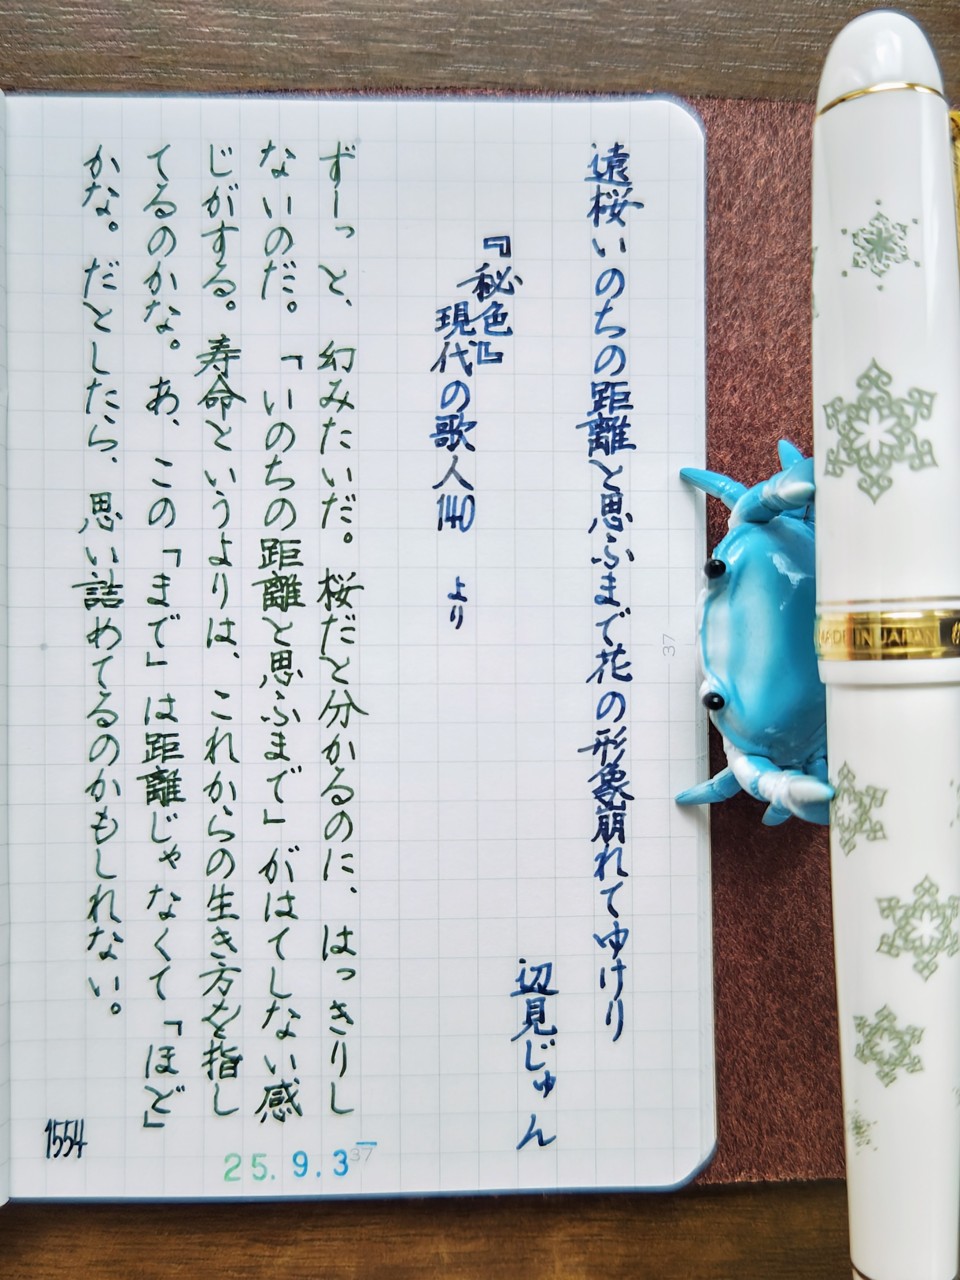 遠桜いのちの距離と思ふまで花の形象崩れてゆけり
辺見じゅん
『秘色』
現代の歌人140　より
ずーっと、幻みたいだ。桜だと分かるのに、はっきりし
ないのだ。「いのちの距離と思ふまで」がはてしない感
じがする。寿命というよりは、これからの生き方を指し
てるのかな。あ、この「まで」は距離じゃなくて「ほど」
かな。だとしたら、思い詰めてるのかもしれない。
1554
25.9.3
37
37
MADE IN JAPAN